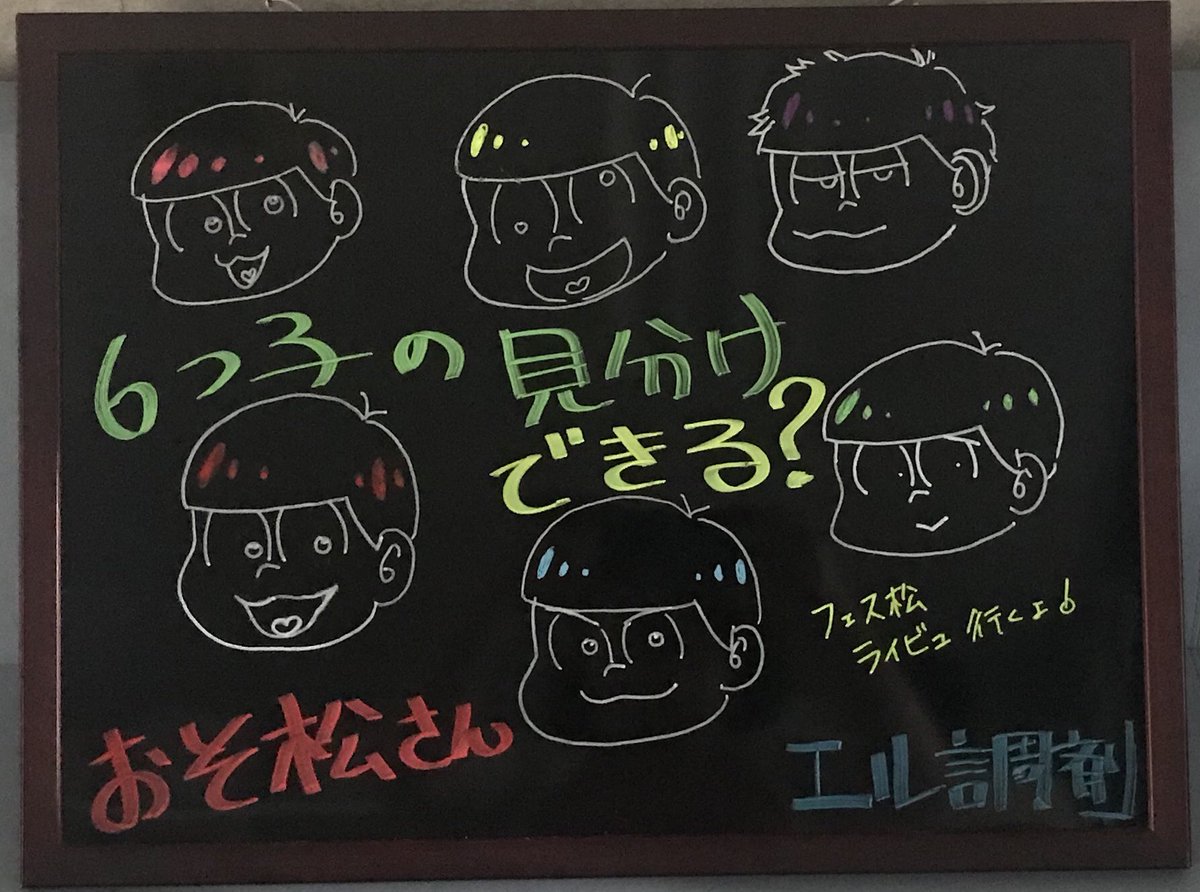 6つ子の見分け
できる?
フェス松
ライビュ行くよ♪
おそ松さん
エル調剤